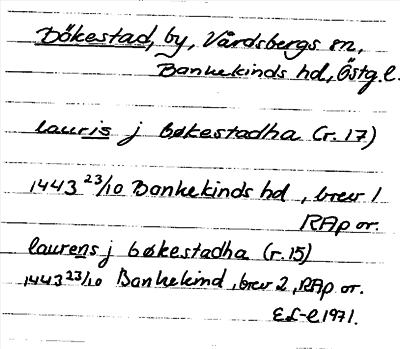 Bökestad, by, Vårdsbergs sn,
Bankekinds hd, Östg.l.
lauris j bøkestadha (r. 17)
1443 23/10 Bankekinds hd, brev 1
RAp or.
laurens j bøkestadha (r. 15)
1443 23/10 Bankekind, brev 2, RAp or.
EL-e 1971.